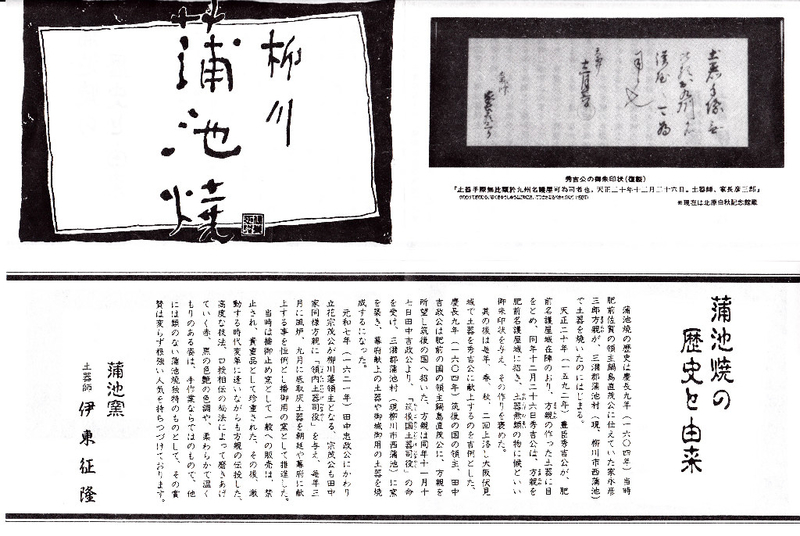 柳川
蒲池焼
秀吉公の御朱印状(複製)
「土器手際無比類於九州名護屋可為司者也。天正二十年十二月二十六日。土器師、家長彦三郎」
※現在は北原白秋記念館蔵
蒲池焼の
歴史と由来
蒲池焼の歴史は慶長九年(一六〇四年)当時
肥前佐賀の領主鍋島直茂公に仕えていた家永彦
三郎方親が、三潴郡蒲池村(現、柳川市西蒲池)
で土器を焼いたのにはじまる。
天正二十年(一五九二年)豊臣秀吉公が、肥
前名護屋城在陣のおり、方親の作った土器に目
をとめ、同年十二月二十六日秀吉公は、方親を
肥前名護屋城に招き、土器無類の物に候といい
御朱印状を与え、その作りを褒めた。
其の後は毎年、春、秋、二回上洛し大阪伏見
城で土器を秀吉公に献上するのを吉例とした。
慶長九年(一六〇四年)筑後の国の領主、田中
吉政公は肥前の国の領主鍋島直茂公に、方親を
所望し筑後の国へ招いた。方親は同年十一月十
七日田中吉政公より、「筑後国土器司役」の命
を受け、三潴郡蒲池村(現柳川市西蒲池)に窯
を築き、幕府献上の土器や御城御用の土器を焼
成するになった。
元和七年(一六二一年)田中忠政公にかわり
立花宗茂公が柳川藩領主となる、宗茂公も田中
家同様方親に「領内土器司役」を与え、毎年三
月に風炉、九月に底取灰土器を朝廷や幕府に献
上する事を恒例とし藩御用の窯として推進した。
当時は藩御止め窯として一般への販売は、禁
止され、貴重品として珍重された。その後、激
動する時代変革に逢いながらも方親の伝授した、
高度な技法、口授相伝の秘法によって磨きあげ
ていく赤、黒の色艶の色調や、柔わらかで温く
もりのある姿は、手作業ならではのもので、他
には類のない蒲池焼独特のものとして、その賞
賛は変らず根強い人気を持ちつづけております。
蒲池窯
土器師 伊東征隆